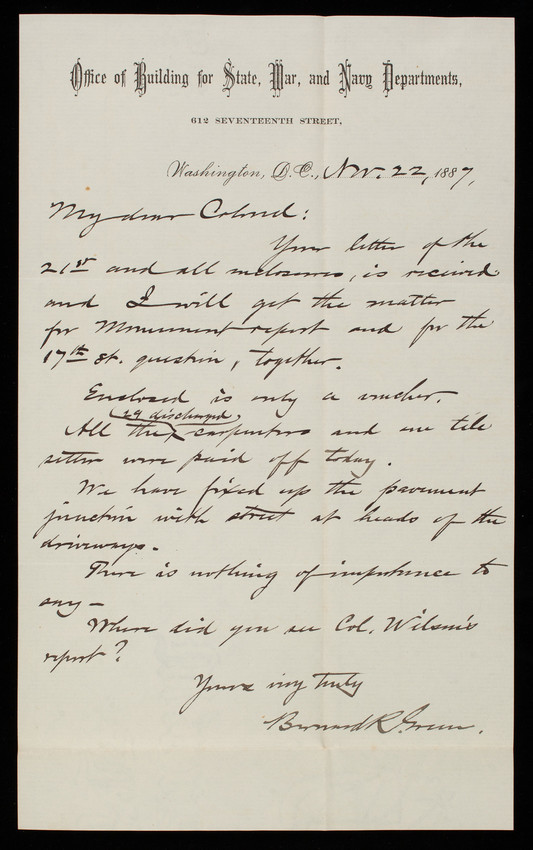 Office of Building for State, War, and Navy Departments,
612 SEVENTEENTH STREET,
Washington, D.C., Nov. 22, 1887,
My dear Colonel:
Your letter of the
21st and all enclosures, is received
and I will get the matter
for Monument report and for the
17th St. question, together.
Enclosed is only a voucher.
(29 discharged)
All the carpenters and one tile
setter were paid off today.
We have fixed up the pavement
junction with street at heads of the
driveways.
There is nothing of importance to
say—
Where did you see Col. Wilson's
report?
Yours very truly
Bernard R. Green.